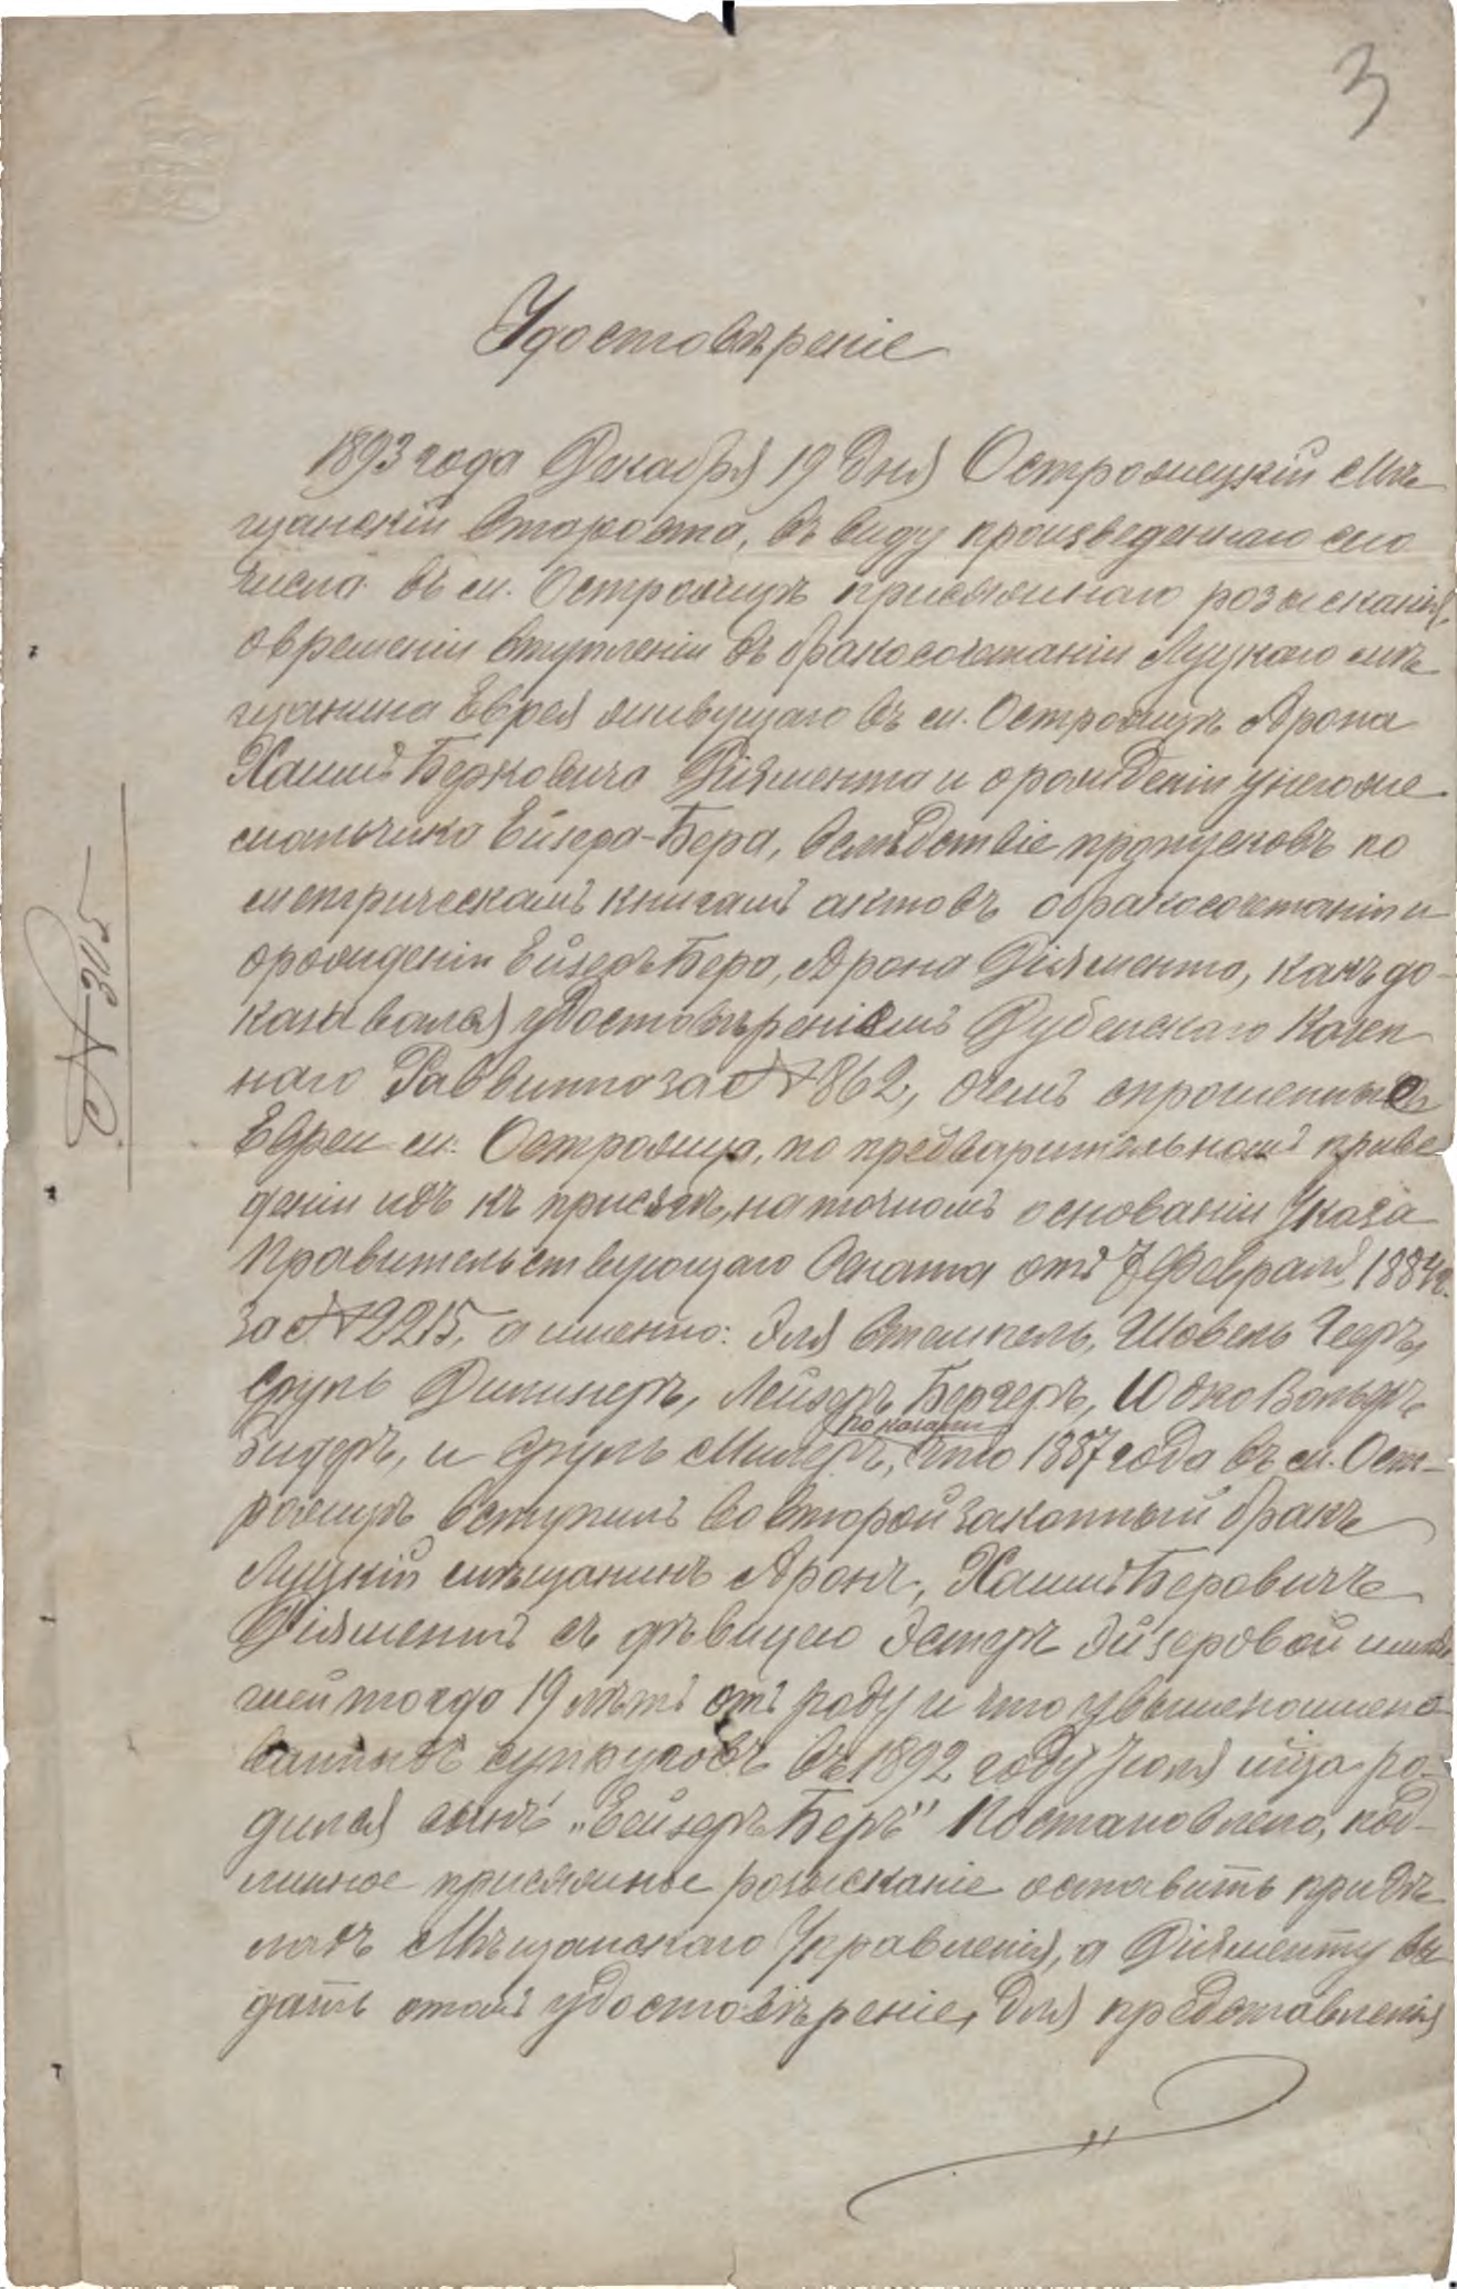 3
Удостовѣреніе
1893 года Декабря 19 дня Острожецкій Мѣ-
щанскій Староста, въ виду произведеннаго сего
числа въ м. Острожцѣ присяжнаго розысканія,
о времени вступленіи въ бракосочетаніи Луцкаго мѣ-
щанина Еврея живущаго въ м. Острожцѣ Арона
Хаимъ Берковича Діямента и о рожденіи у него же
мальчика Ейзера-Бера, вслѣдствіе пропусковъ по
метрическимъ книгамъ актовъ о бракосочетаніи и
о рожденіи Ейзеръ Бера, Арона Діямента, какъ до-
казывалъ удостовѣреніемъ Дубенскаго Казен-
наго Раввина за № 862, о чемъ спрошенные
Евреи м. Острожца, по предварительномъ приве-
деніи ихъ къ присягѣ, на точномъ основаніи Указа
Правительствующаго Сената отъ 7 Февраля 1884 г.
за № 2215, а именно: Эля Стемпель, Шовель Гееръ,
Сруль Дишнеръ, Лейзеръ Бергеръ, Юдко Вольфъ
показали
Зидеръ, и Сруль Милеръ, что 1887 года въ м. Ост-
рожцѣ вступилъ во второй законный бракъ
Луцкій мѣщанинъ Аронъ, Хаимъ Беровичъ
Діяментъ съ дѣвицею Эстеръ Эйзеровой имѣв-
шей тогда 19 лѣтъ отъ роду и что у вышепоимено-
ванныхъ супруговъ въ 1892 году Іюля м-ца ро-
дился сынъ „Ейзеръ Беръ" Постановлено, под-
линное присяжное розысканіе оставить при дѣ-
лахъ Мѣщанскаго Управленія, а Діяменту вы-
дать этомъ удостовѣреніе, для представленія
№ 305